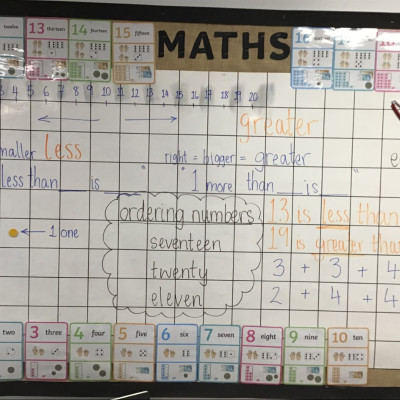 twelve
13 thirteen
14 fourteen
15 fifteen
MATHS
3 4 5 6 7 8 9 10 11 12 13 14 15 16 17 18 19 20
greater
smaller less
right = bigger = greater
less than ___ is ___
"1 more than ___ is ___"
ordering numbers
13 is less than
1 one
seventeen
19 is greater than
twenty
3 + 3 + 4
eleven
2 + 4 + 4
two
3 three
4 four
5 five
6 six
7 seven
8 eight
9 nine
10 ten